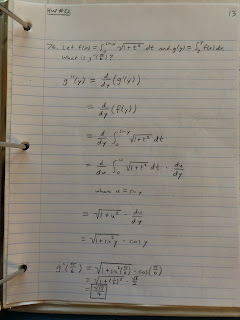 HW #23
13
76. Let f(x) = ∫₀^(sin x) √(1+t²) dt and g(y) = ∫₃^y f(x) dx.
What is g''(π/6)?
g''(y) = d/dy (g'(y))
= d/dy (f(y))
= d/dy ∫₀^(sin y) √(1+t²) dt
= d/du ∫₀^u √(1+t²) dt · du/dy
where u = sin y
= √(1+u²) · du/dy
= √(1+sin²y) · cos y
g''(π/6) = √(1+sin²(π/6)) · cos(π/6)
= √(1+(1/2)²) · √3/2
= √15/4